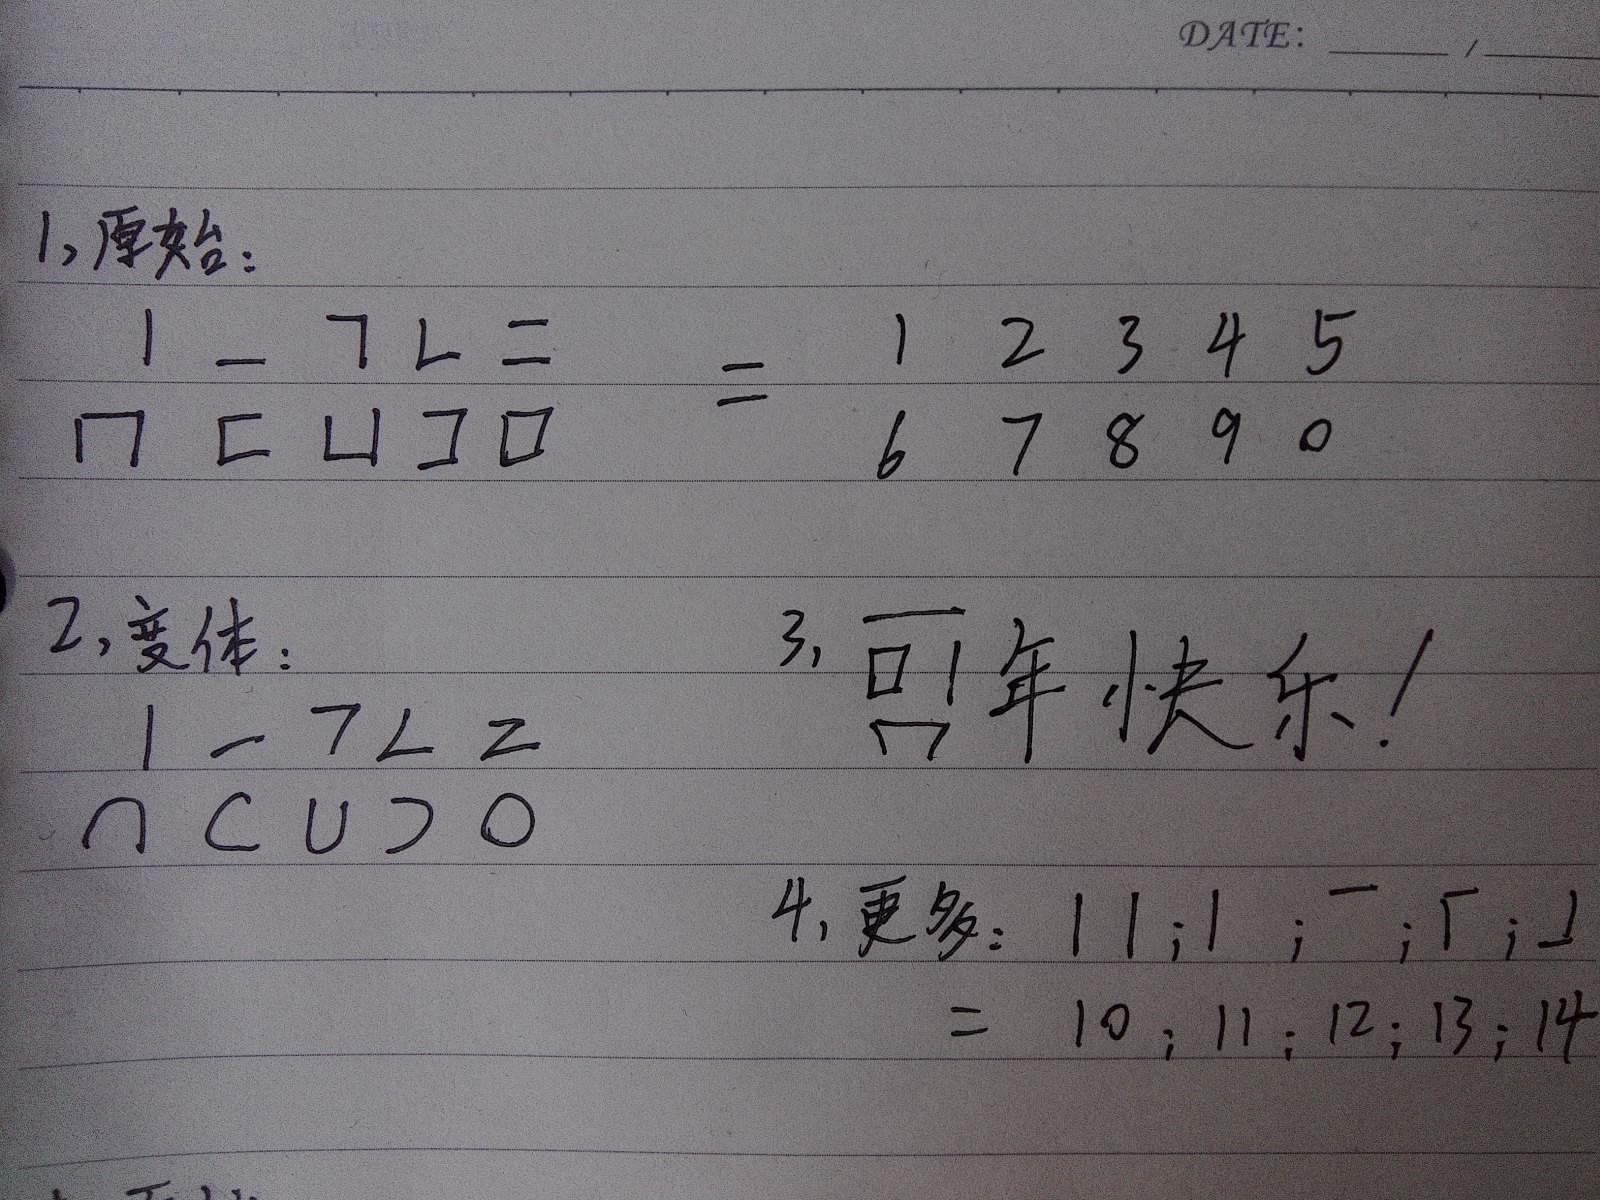 DATE: ____ / ____
1,原始:
| _ ㄱ ㄴ 二 = 1 2 3 4 5
冂 匚 凵 コ 口 6 7 8 9 0
2,变体:
| _ ㄱ ∠ 二
∩ ⊂ U ⊃ O
3, 年快乐!
4,更多: | | ; | ; ¯ ; 「 ; 」
= 10 ; 11 ; 12 ; 13 ; 14